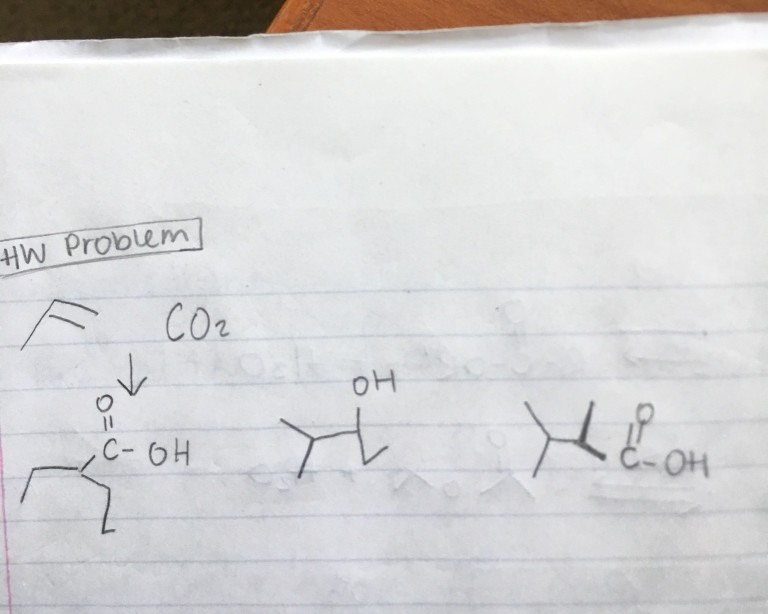 HW Problem
CO2
OH
O O
C-OH C-OH